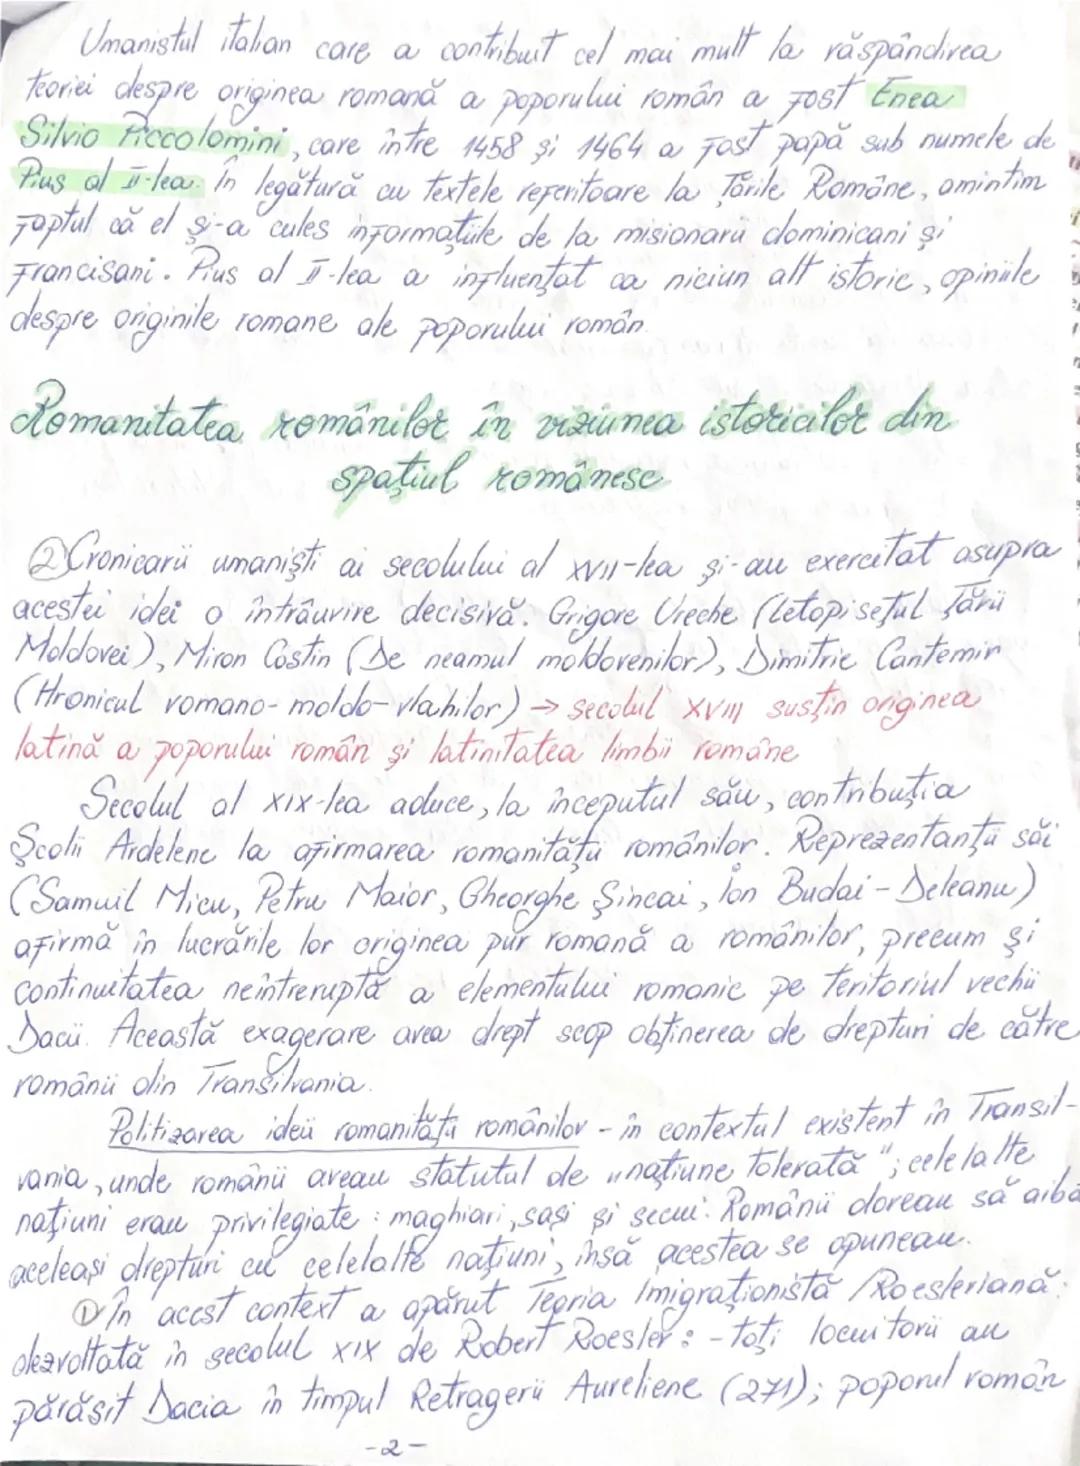 Umanistul italian care a contribuit cel mai mult la răspândirea
teoriei despre originea romană a poporului român a fost Enea
Silvio Piccolomini, care între 1458 și 1464 a fost papă sub numele de
Pius al II-lea. În legătură cu textele referitoare la Țările Române, amintim
faptul că el și-a cules informațiile de la misionarii dominicani și
franciscani. Pius al II-lea a influențat ca niciun alt istoric, opiniile
despre originile romane ale poporului român.
Romanitatea românilor în viziunea istoricilor din
spațiul românesc
② Cronicarii umaniști ai secolului al XVII-lea și-au exercitat asupra
acestei idei o înrâurire decisivă. Grigore Ureche (Letopisețul Țării
Moldovei), Miron Costin (De neamul moldovenilor), Dimitrie Cantemir
(Hronicul romano-moldo-vlahilor) → secolul XVIII susțin originea
latină a poporului român și latinitatea limbii române
Secolul al XIX-lea aduce, la începutul său, contribuția
Școlii Ardelene la afirmarea romanității românilor. Reprezentanții săi
(Samuil Micu, Petru Maior, Gheorghe Șincai, Ion Budai-Deleanu)
afirmă în lucrările lor originea pur romană a românilor, precum și
continuitatea neîntreruptă a elementului romanic pe teritoriul vechii
Dacii. Această exagerare avea drept scop obținerea de drepturi de către
românii din Transilvania.
Politizarea ideii romanității românilor - în contextul existent în Transil-
vania, unde românii aveau statutul de „națiune tolerată"; celelalte
națiuni erau privilegiate: maghiari, sași și secui. Românii doreau să aibă
aceleași drepturi cu celelalte națiuni, însă acestea se opuneau.
① În acest context a apărut Teoria Imigraționistă /Roesleriană:
dezvoltată în secolul XIX de Robert Roesler: - toți locuitorii au
părăsit Dacia în timpul Retragerii Aureliene (271); poporul român
-2-